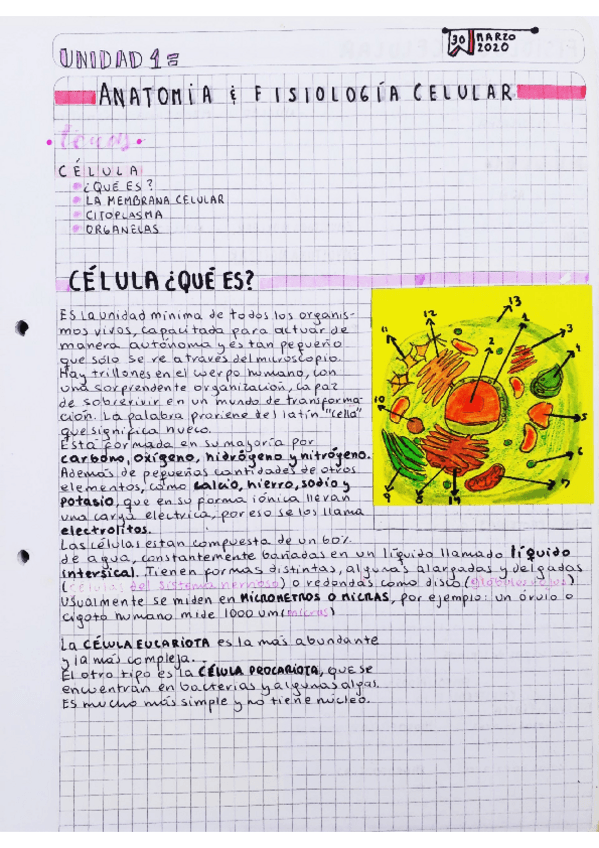 UNIDAD 1=
30 MARZO
2020
ANATOMÍA & FISIOLOGÍA CELULAR
temas
CÉLULA
¿QUÉ ES?
LA MEMBRANA CELULAR
CITOPLASMA
ORGANELAS
CÉLULA ¿QUÉ ES?
Es la unidad mínima de todos los organis-
mos vivos, capacitada para actuar de
manera autónoma y es tan pequeño
que sólo se ve a través del microscopio.
Hay trillones en el cuerpo humano, con
una sorprendente organización, capaz
de sobrevivir en un mundo de transforma-
ción. La palabra proviene del latín "cella"
que significa hueco.
Está formada en su mayoría por
carbono, oxígeno, hidrógeno y nitrógeno.
Además de pequeñas cantidades de otros
elementos, como calcio, hierro, sodio y
potasio, que en su forma iónica llevan
una carga eléctrica, por eso se los llama
electrolitos.
Las células están compuesta de un 60%
de agua, constantemente bañadas en un líquido llamado líquido
intersical. Tienen formas distintas, algunas alargadas y delgadas
(células del sistema nervioso) o redondas como disco (glóbulos rojos)
Usualmente se miden en MICROMETROS O MICRAS, por ejemplo: un óvulo o
cigoto humano mide 1000 um (micras)
La CÉLULA EUCARIOTA es la más abundante
y la más compleja.
El otro tipo es la CÉLULA PROCARIOTA, que se
encuentran en bacterias y algunas algas.
Es mucho más simple y no tiene núcleo.
13
12
1
11
2
3
4
10
5
6
9
8
14
7